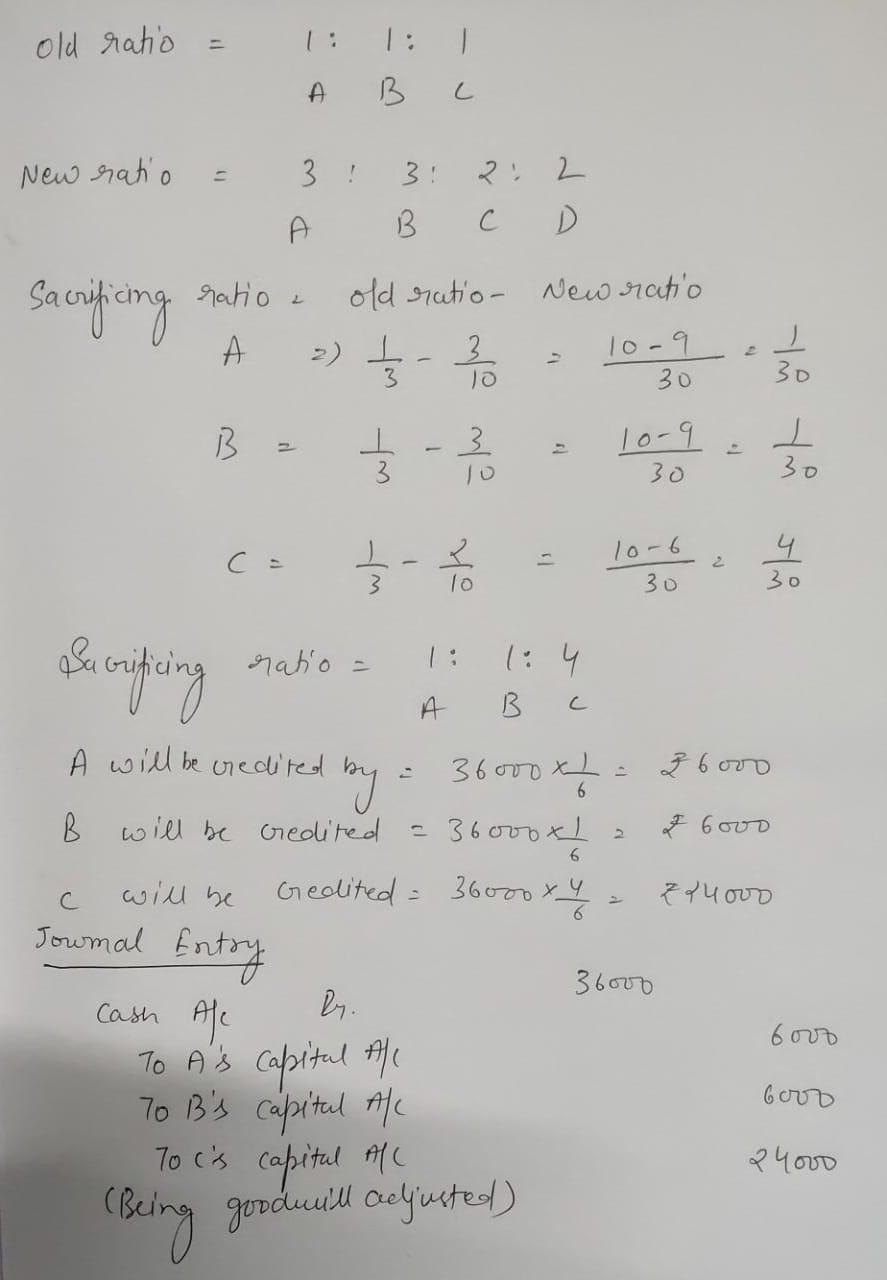 Old ratio = 1 : 1 : 1
A B C
New ratio = 3 : 3 : 2 : 2
A B C D
Sacrificing ratio = old ratio - New ratio
A => 1/3 - 3/10 = 10-9/30 = 1/30
B = 1/3 - 3/10 = 10-9/30 = 1/30
C = 1/3 - 2/10 = 10-6/30 = 4/30
Sacrificing ratio = 1 : 1 : 4
A B C
A will be credited by = 36000 x 1/6 = ₹6000
B will be credited = 36000 x 1/6 = ₹6000
C will be credited = 36000 x 4/6 = ₹24000
Journal Entry
36000
Cash A/c Dr.
6000
To A's Capital A/c
To B's Capital A/c 6000
To C's capital A/c 24000
(Being goodwill adjusted)